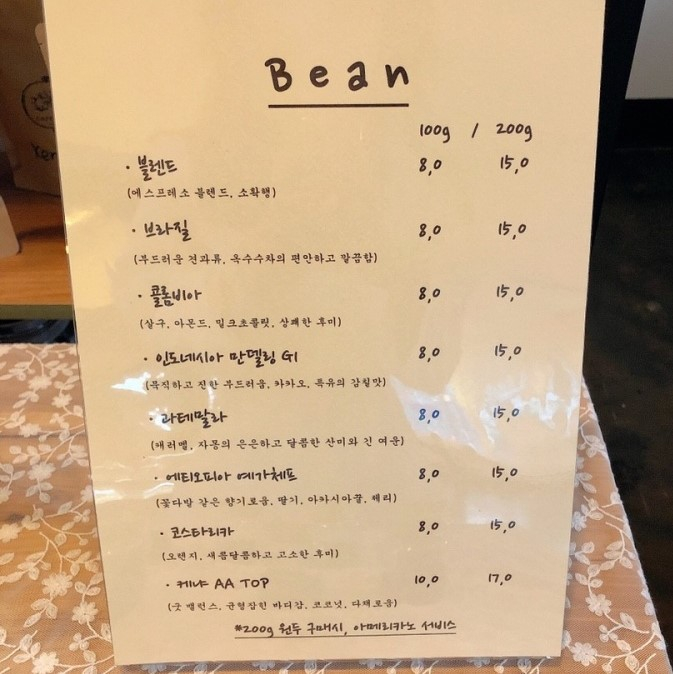 Bean
100g / 200g
· 블렌드 8,0 15,0
(에스프레소 블렌드, 소확행)
· 브라질 8,0 15,0
(부드러운 견과류, 옥수수차의 편안하고 깔끔함)
· 콜롬비아 8,0 15,0
(살구, 아몬드, 밀크초콜릿, 상쾌한 후미)
· 인도네시아 만델링 G1 8,0 15,0
(묵직하고 진한 부드러움, 카카오, 특유의 감칠맛)
· 과테말라 8,0 15,0
(캐러멜, 자몽의 은은하고 달콤한 산미와 긴 여운)
· 에티오피아 예가체프 8,0 15,0
(꽃다발 같은 향기로움, 딸기, 아카시아꿀, 체리)
· 코스타리카 8,0 15,0
(오렌지, 새콤달콤하고 고소한 후미)
· 케냐 AA TOP 10,0 17,0
(굿 밸런스, 균형잡힌 바디감, 코코넛, 다채로움)
*200g 원두 구매시, 아메리카노 서비스